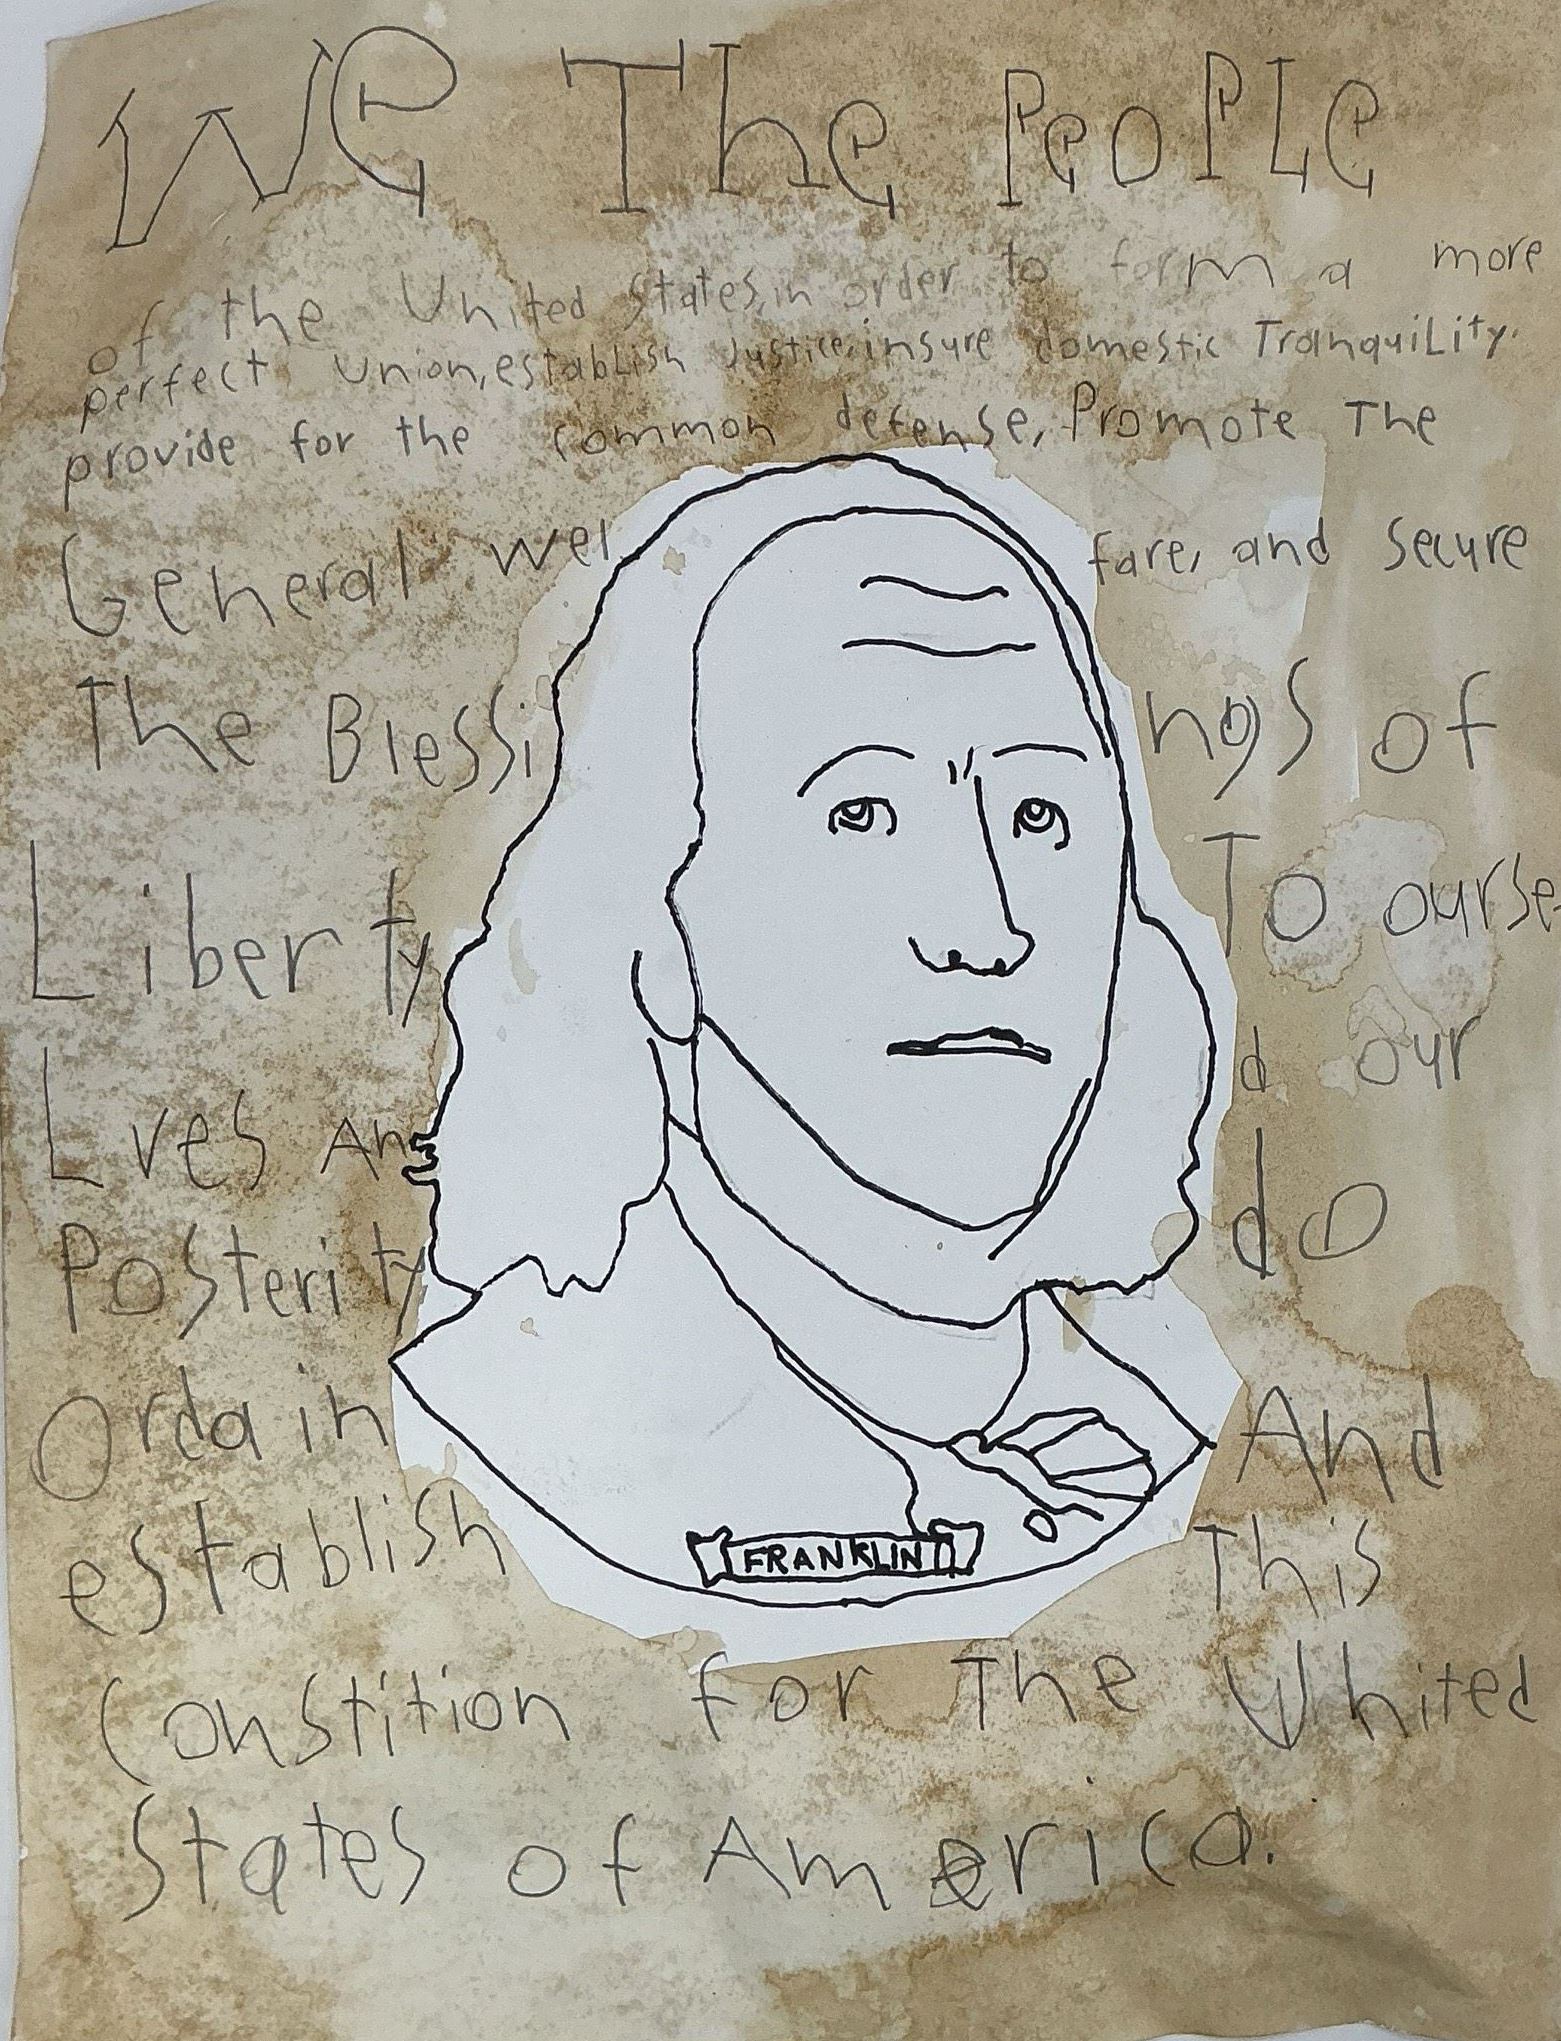 We The PeoPLe
of the United States, in order to form a more
perfect Union, establish Justice, insure domestic TranquiLity.
provide for the common defense, Promote The
General wel fare, and secure
The Blessi ngs of
Liberty To ourse
Lves And our
Posterity do
Ordain And
establish This
Constition for The United
States of America.
FRANKLIN